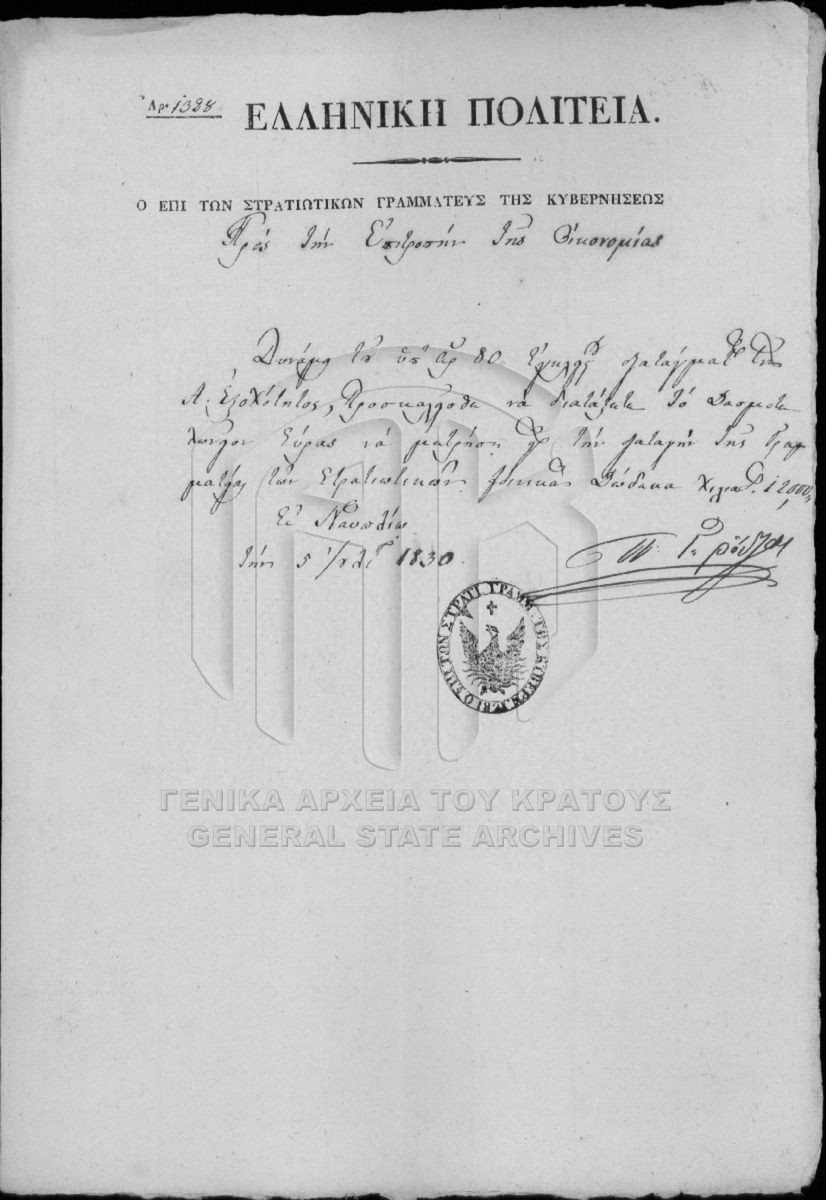 Ἀρ. 1388
ΕΛΛΗΝΙΚΗ ΠΟΛΙΤΕΙΑ.
Ο ΕΠΙ ΤΩΝ ΣΤΡΑΤΙΩΤΙΚΩΝ ΓΡΑΜΜΑΤΕΥΣ ΤΗΣ ΚΥΒΕΡΝΗΣΕΩΣ
Πρός τήν Ἐπιτροπήν τῆς Οἰκονομίας
Δυνάμει τοῦ ὑπ' ἀρ 80 τῆς
Α. Ἐξοχότητος, προσκαλεῖσθε νά διατάξετε τό
Σύρας νά μετρήση τήν τῆς Γραμ
ματείας τῶν Στρατιωτικῶν φοίνικας δώδεκα χιλιάδ. 12000,
Ἐν Ναυπλίῳ
τήν 5 1830
ΓΕΝΙΚΑ ΑΡΧΕΙΑ ΤΟΥ ΚΡΑΤΟΥΣ
GENERAL STATE ARCHIVES